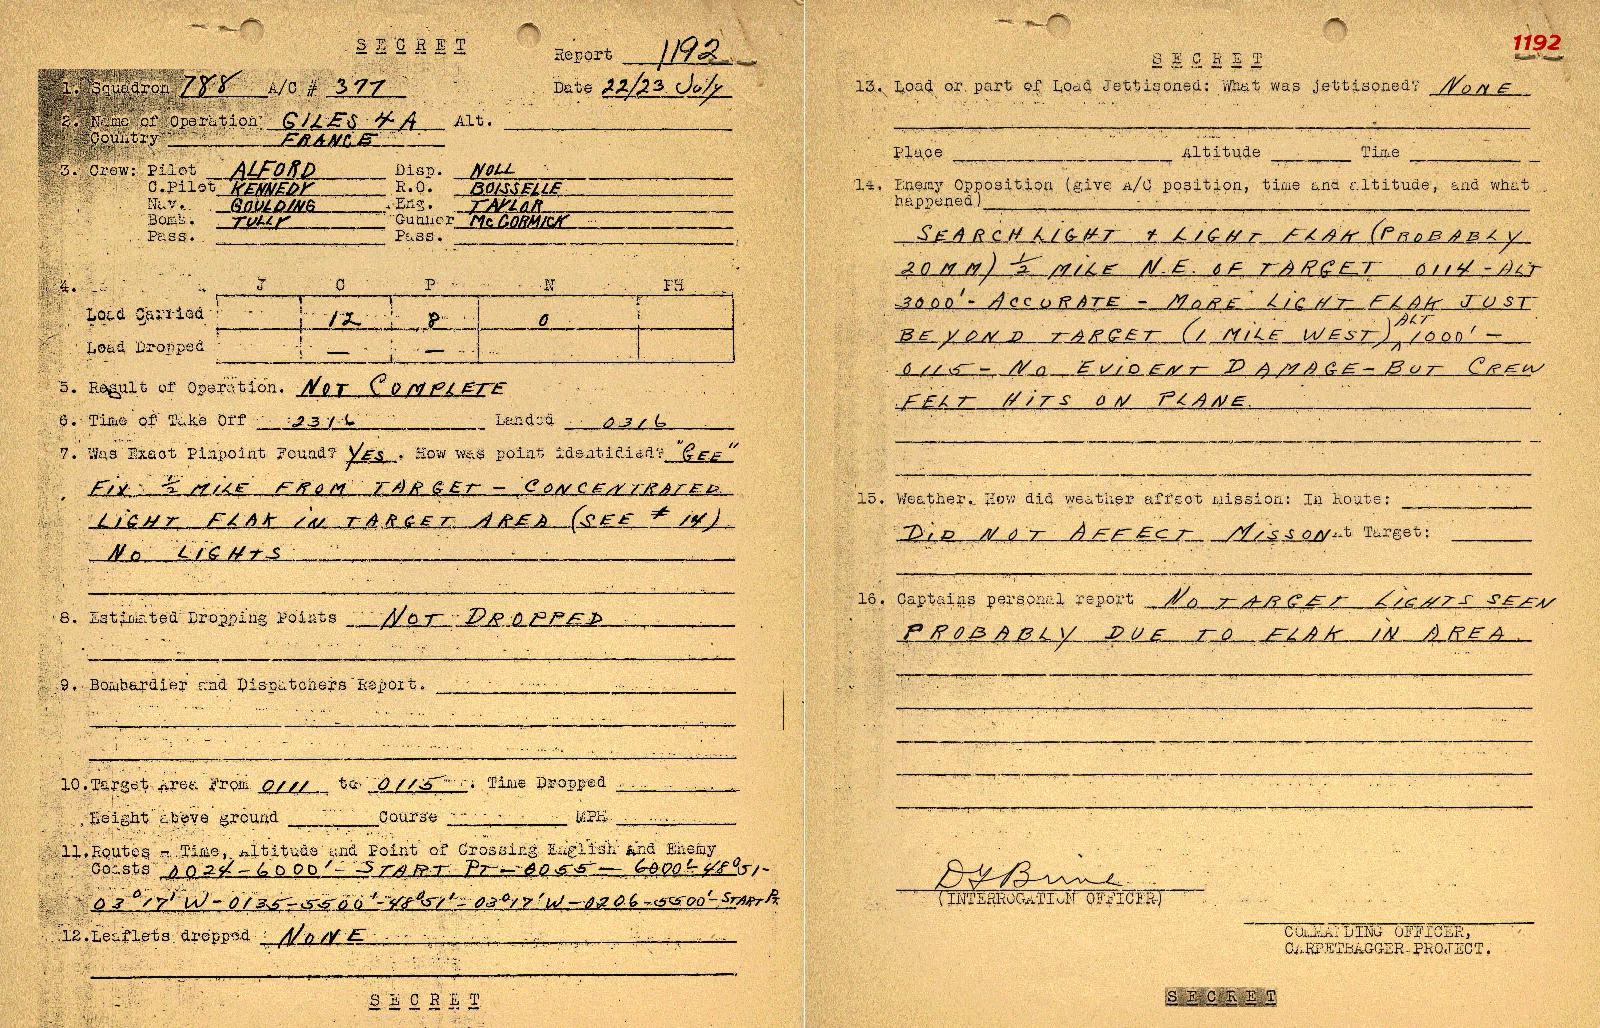 SECRET
Report 1192
1. Squadron 788 A/C # 377 Date 22/23 July
2. Name of Operation GILES 4A Alt.
Country FRANCE
3. Crew: Pilot ALFORD Disp. NOLL
C.Pilot KENNEDY R.O. BOISSELLE
Nav. GOULDING Eng. TAYLOR
Bomb. TULLY Gunner McCORMICK
Pass. Pass.
4. J C P N PH
Load Carried 12 8 0
Load Dropped — —
5. Result of Operation. NOT COMPLETE
6. Time of Take Off 2316 Landed 0316
7. Was Exact Pinpoint Found? YES. How was point identidied? "GEE"
FIX ½ MILE FROM TARGET - CONCENTRATED
LIGHT FLAK IN TARGET AREA (SEE # 14)
NO LIGHTS
8. Estimated Dropping Points NOT DROPPED
9. Bombardier and Dispatchers Report.
10. Target Area From 0111 to 0115. Time Dropped
Height above ground Course MPH
11. Routes - Time, Altitude and Point of Crossing English and Enemy
Coasts 0024-6000'- START PT-0055- 6000'-48°51-
03°17' W-0135-5500'-48°51'-03°17'W-0206-5500'-START Pt.
12. Leaflets dropped NONE
SECRET
1192
SECRET
13. Load or part of Load Jettisoned: What was jettisoned? NONE
Place Altitude Time
14. Enemy Opposition (give A/C position, time and altitude, and what
happened)
SEARCHLIGHT + LIGHT FLAK (PROBABLY
20MM) ½ MILE N.E. OF TARGET 0114 - ALT
3000'- ACCURATE - MORE LIGHT FLAK JUST
BEYOND TARGET (1 MILE WEST) ALT 1000' -
0115 - NO EVIDENT DAMAGE - BUT CREW
FELT HITS ON PLANE.
15. Weather. How did weather affect mission: In Route:
DID NOT AFFECT MISSON At Target:
16. Captains personal report NO TARGET LIGHTS SEEN
PROBABLY DUE TO FLAK IN AREA.
(INTERROGATION OFFICER)
COMMANDING OFFICER,
CARPETBAGGER PROJECT.
SECRET